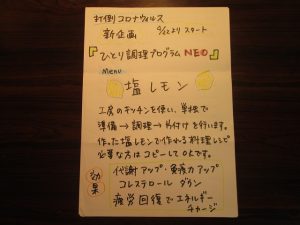 打倒コロナウィルス
新企画 %より スタート
『ひとり調理プログラムNEO』
Menu
塩レモン
工房のキッチンを使い、単独で
準備→調理→片付けを行います。
作った塩レモンで作れる料理レシピ
必要な方はコピーしてOKです。
効果
代謝アップ・免疫力アップ
コレステロール ダウン
疲労回復でエネルギー
チャージ